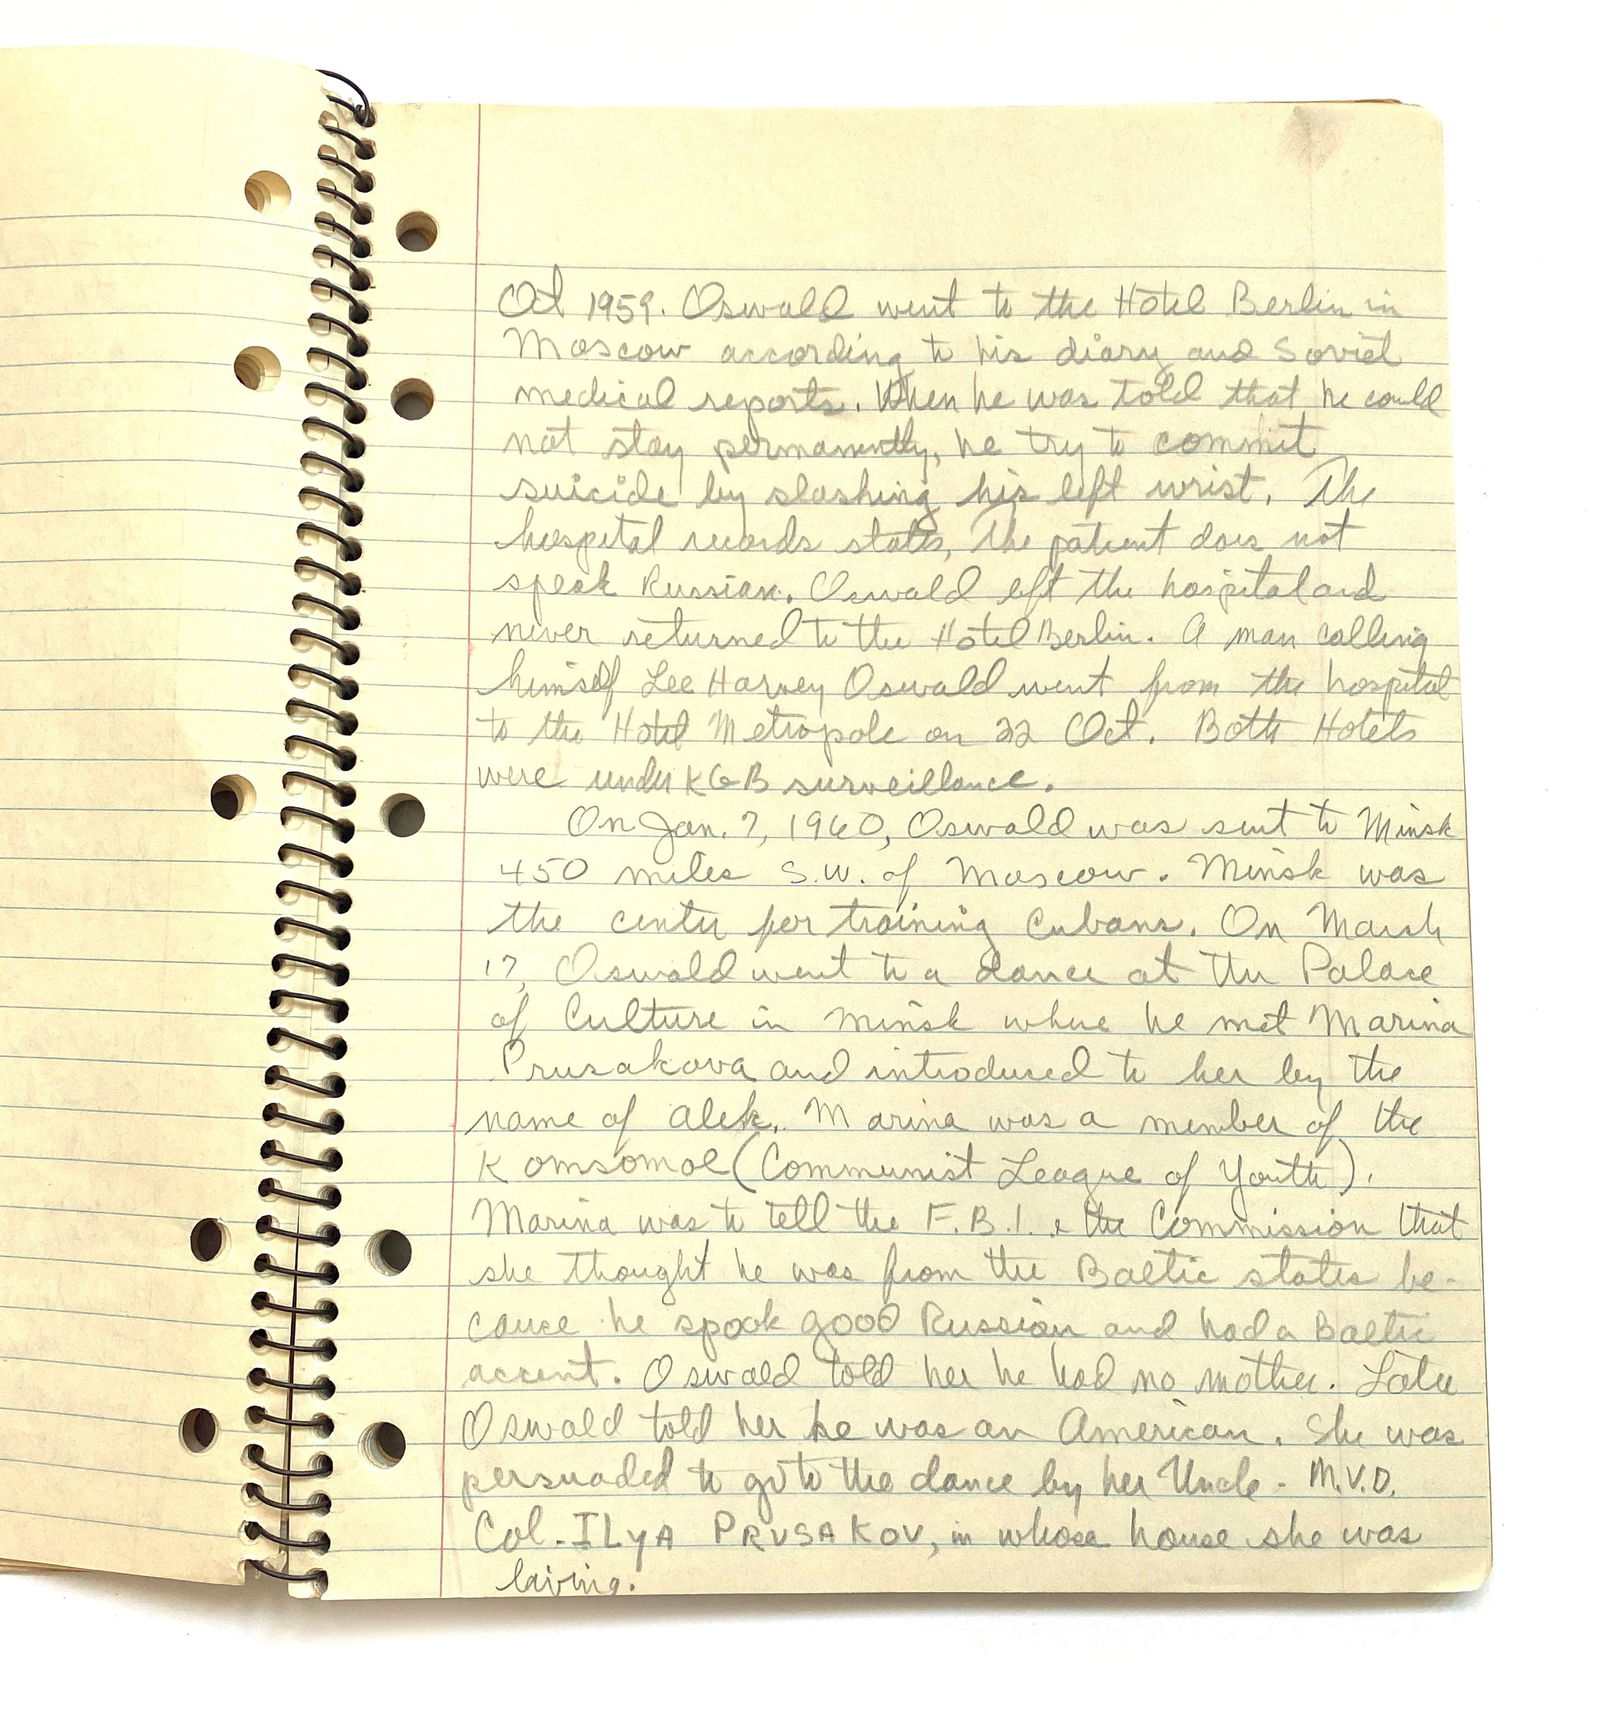 Oct 1959. Oswald went to the Hotel Berlin in
Moscow according to his diary and Soviet
medical reports. When he was told that he could
not stay permanently, he try to commit
suicide by slashing his left wrist. The
hospital records states, the patient does not
speak Russian. Oswald left the hospital and
never returned to the Hotel Berlin. A man calling
himself Lee Harvey Oswald went from the hospital
to the Hotel Metropole on 22 Oct. Both Hotels
were under KGB surveillance.
On Jan. 7, 1960, Oswald was sent to Minsk
450 miles S.W. of Moscow. Minsk was
the center for training Cubans. On March
17, Oswald went to a dance at the Palace
of Culture in Minsk where he met Marina
Prusakova and introduced to her by the
name of Alek. Marina was a member of the
Komsomol (Communist League of Youth).
Marina was to tell the F.B.I. & the Commission that
she thought he was from the Baltic states be-
cause he spook good Russian and had a Baltic
accent. Oswald told her he had no mother. Later
Oswald told her he was an American. She was
persuaded to go to the dance by her Uncle - M.V.D.
Col. - ILYA PRUSAKOV, in whose house she was
living.